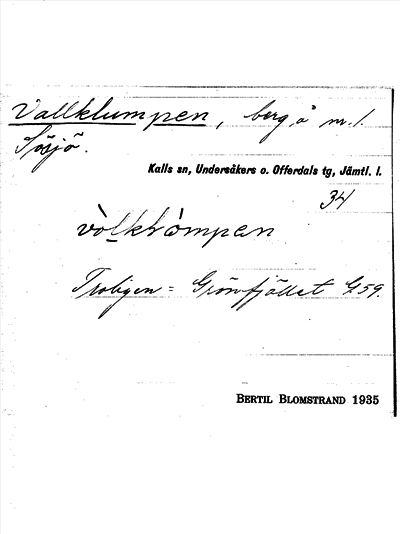 Vallklumpen, berg å nr. 1.
Sösjö.
Kalls sn, Undersåkers o. Offerdals tg, Jämtl. l.
34
Troligen = Grönfjället G59.
BERTIL BLOMSTRAND 1935